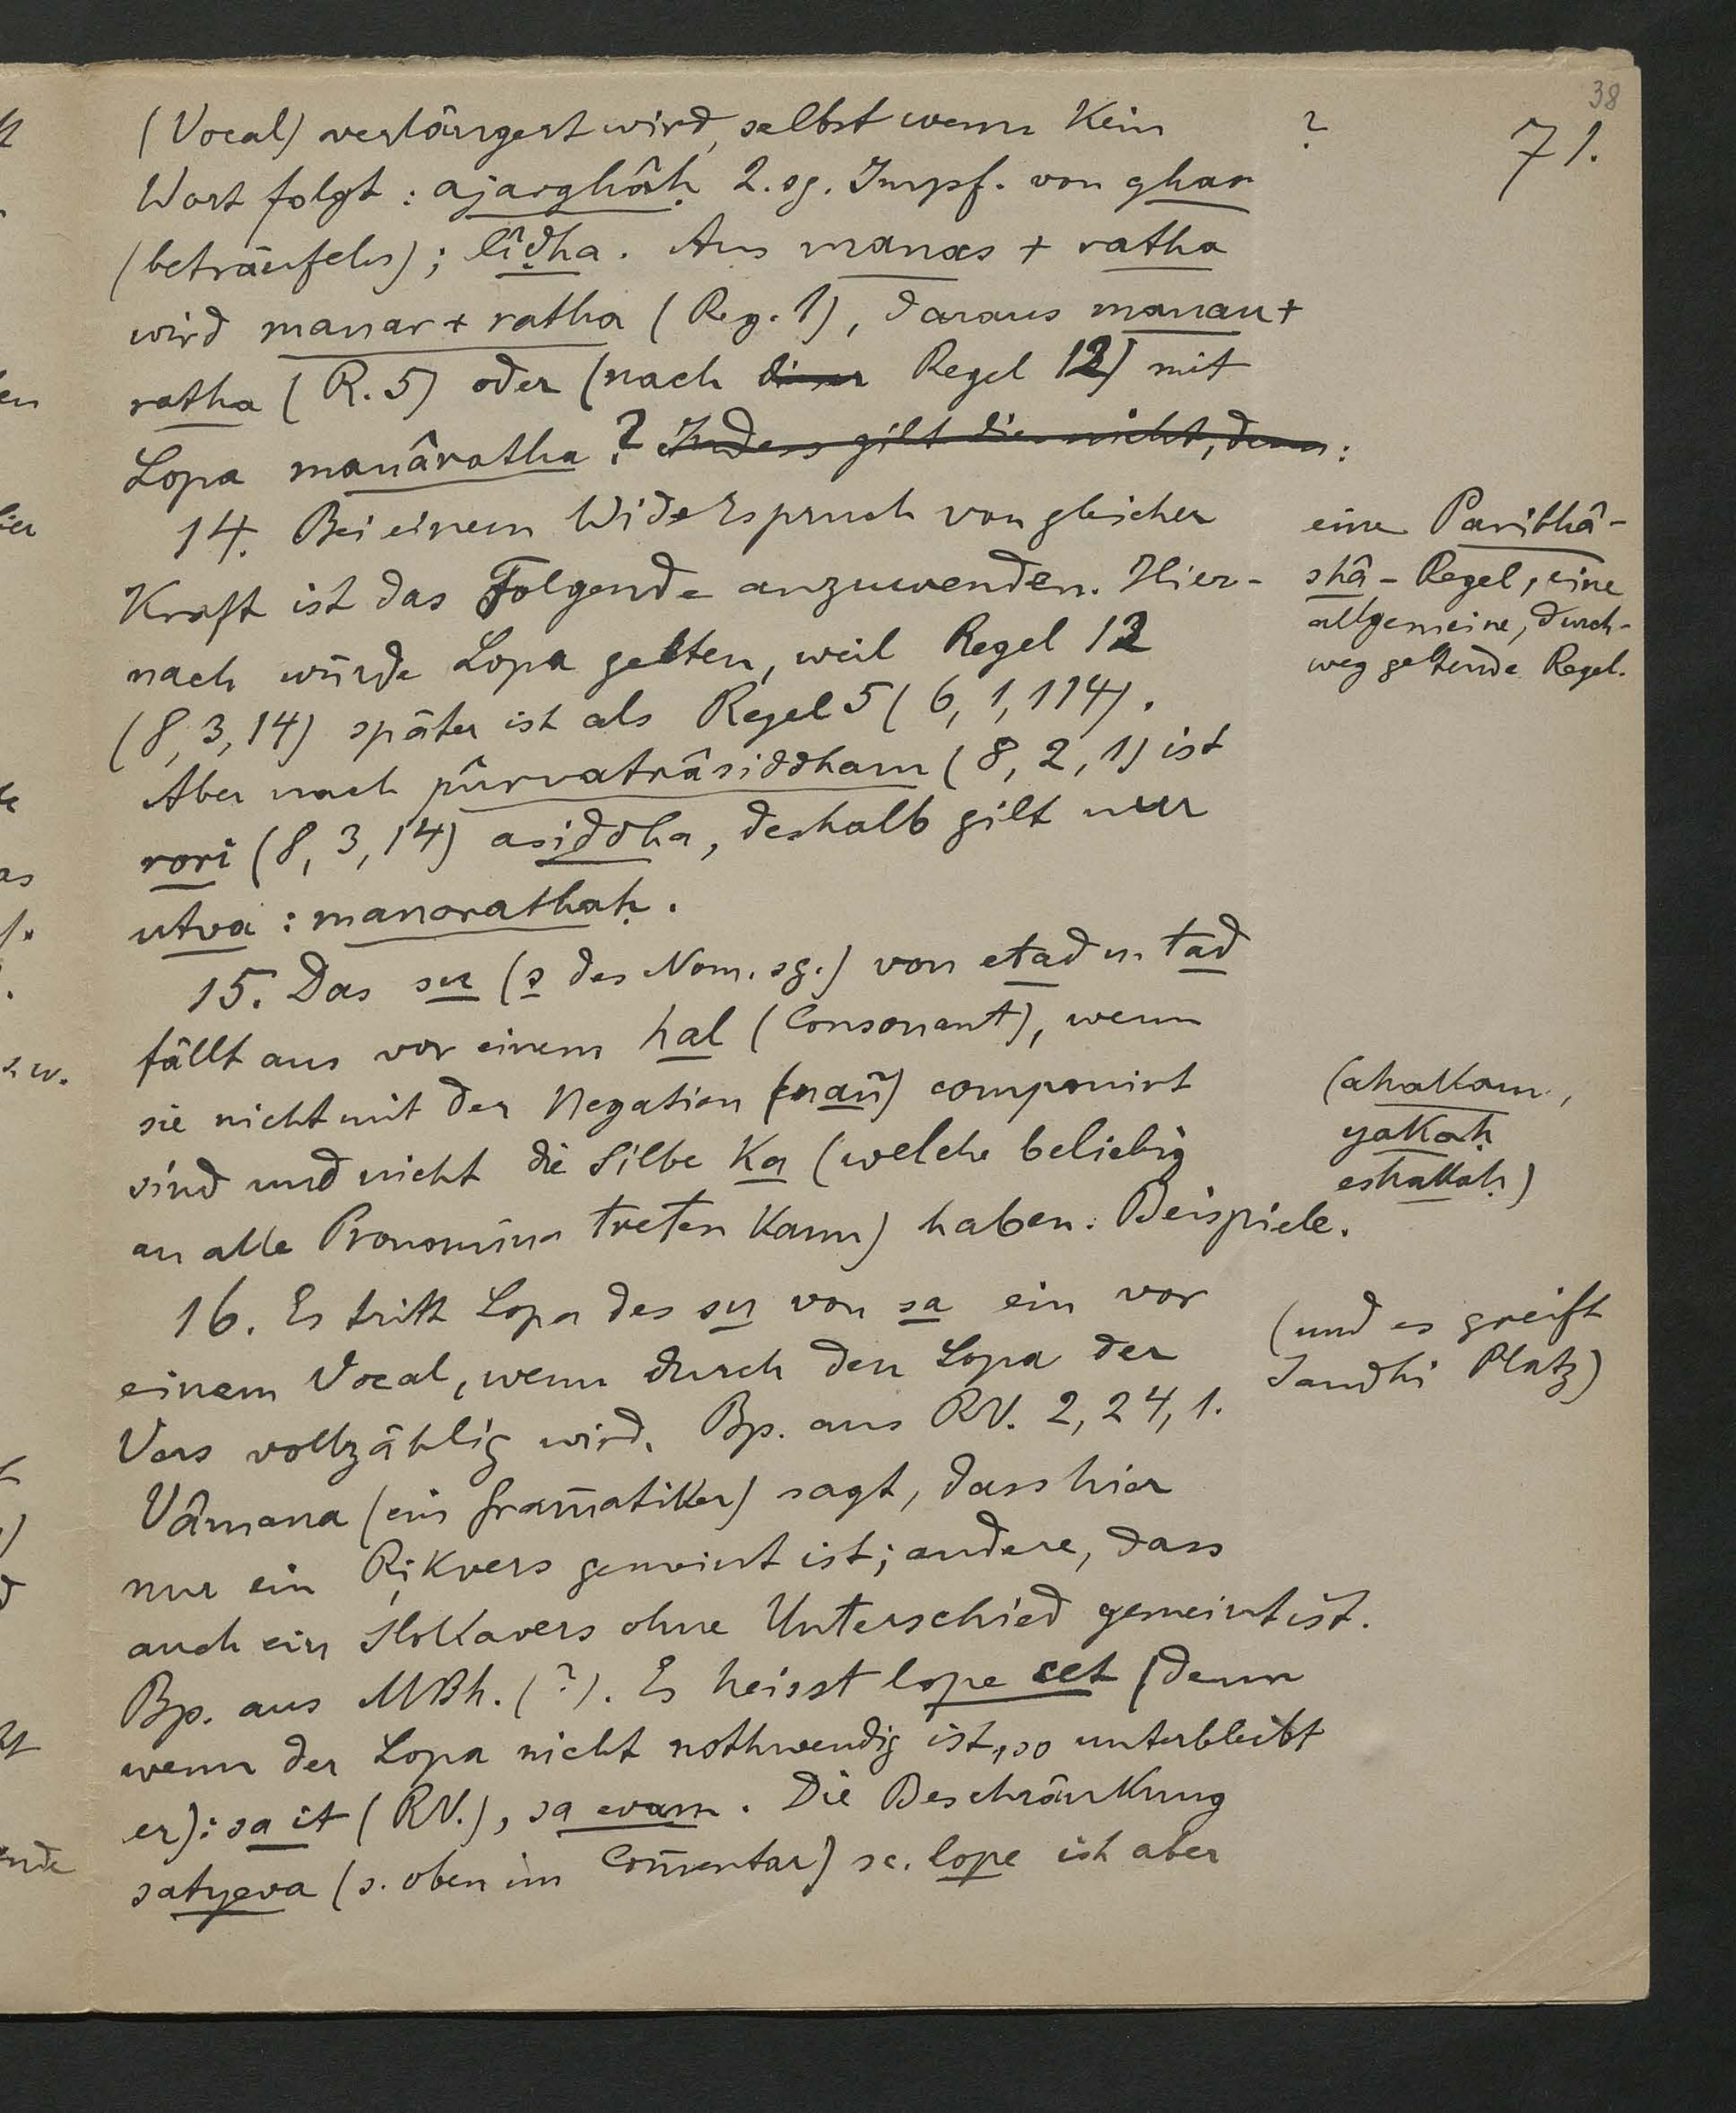 38
71.
(Vocal) verlängert wird, selbst wenn kein ?
Wort folgt : ajarghâḥ 2. sg. Impf. von ghar
(beträufeln); lîḍha. Aus manas + ratha
wird manar + ratha (Reg. 1), daraus manau +
ratha (R. 5) oder (nach dieser Regel 12) mit
Lopa manâratha ? Indess gilt dies nicht, denn :
14. Bei einem Widerspruch von gleicher
Kraft ist das Folgende anzuwenden. Hier-
nach würde Lopa gelten, weil Regel 12
(8, 3, 14) später ist als Regel 5 (6, 1, 114).
Aber nach pûrvatrâsiddham (8, 2, 1) ist
rori (8, 3, 14) asiddha, deshalb gilt nur
utva : manorathaḥ.
eine Paribhâ-
shâ-Regel, eine
allgemeine, durch-
weg geltende Regel.
15. Das su (s des Nom. sg.) von etad u. tad
fällt aus vor einem hal (Consonant), wenn
sie nicht mit der Negation (nañ) componirt
sind und nicht die Silbe ka (welche beliebig
an alle Pronomina treten kann) haben. Beispiele.
(ahakam,
yakaḥ
eshakaḥ)
16. Es tritt Lopa des su von sa ein vor
einem Vocal, wenn durch den Lopa der
Vers vollzählig wird. Bp. aus RV. 2, 24, 1.
(und es greift
Sandhi Platz)
Vâmana (ein Gram̄atiker) sagt, dass hier
nur ein Ṛikvers gemeint ist; andere, dass
auch ein Slokavers ohne Unterschied gemeint ist.
Bp. aus MBh. (?). Es heisst lope cet (denn
wenn der Lopa nicht nothwendig ist, so unterbleibt
er): sa it (RV.), sa evam. Die Beschränkung
satyeva (s. oben im Com̄entar) sc. lope ist aber